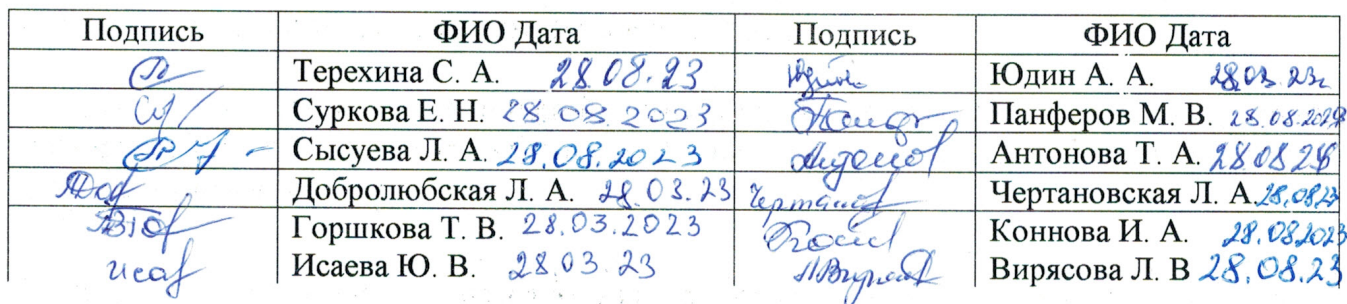 Подпись ФИО Дата Подпись ФИО Дата
Терехина С. А. 28.08.23 Юдин А. А. 28.03.23
Суркова Е. Н. 28.08.2023 Панферов М. В. 28.08.2023
Сысуева Л. А. 28.08.2023 Антонова Т. А. 280823
Добролюбская Л. А. 28.03.23 Чертановская Л. А. 28.08.23
Горшкова Т. В. 28.03.2023 Коннова И. А. 28.082023
Исаев Исаева Ю. В. 28.03.23 Вирясова Л. В 28.08.23